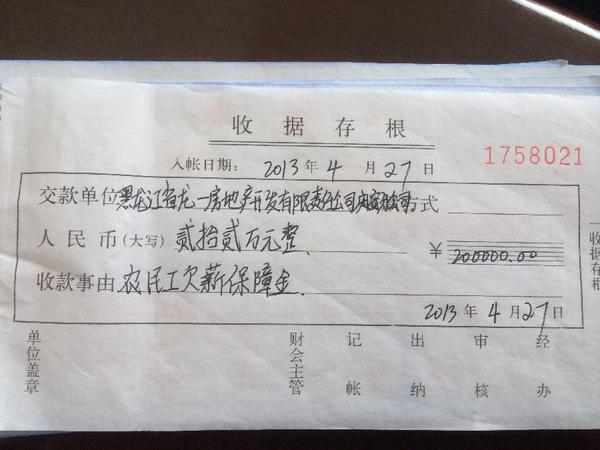 收据存根
入帐日期: 2013年4月27日
1758021
交款单位 黑龙江省龙一房地产开发有限责任公司 方式
人民币(大写) 贰拾贰万元整 ¥ 200000.00
收款事由 农民工欠薪保障金
2013年4月27日
收据存根
单位盖章 财会主管 记帐 出纳 审核 经办